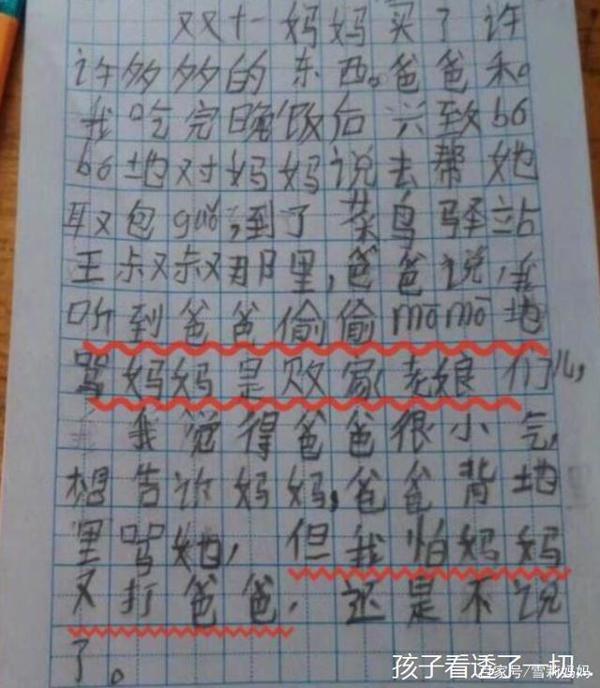 双十一妈妈买了许
许多多的东西。爸爸和
我吃完晚饭后兴致bó
bó地对妈妈说去帮她
取包guǒ,到了菜鸟驿站
王叔叔那里,爸爸说,我
听到爸爸偷偷mōmō地
骂妈妈是败家老娘们儿,
我觉得爸爸很小气,
想告诉妈妈,爸爸背地
里骂她,但我怕妈妈
又打爸爸,还是不说
了。
孩子看透了一切.
百家号/雪莉妈妈